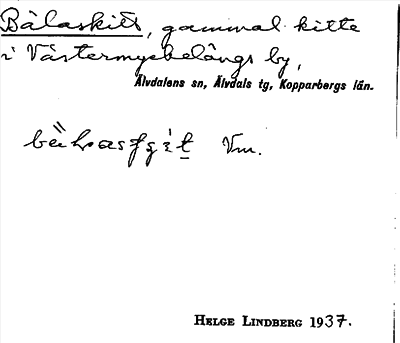 Bålaskitt, gammal kitte
i Västermyckelängs by,
Älvdalens sn, Älvdals tg, Kopparbergs län.
Vm.
HELGE LINDBERG 1937.